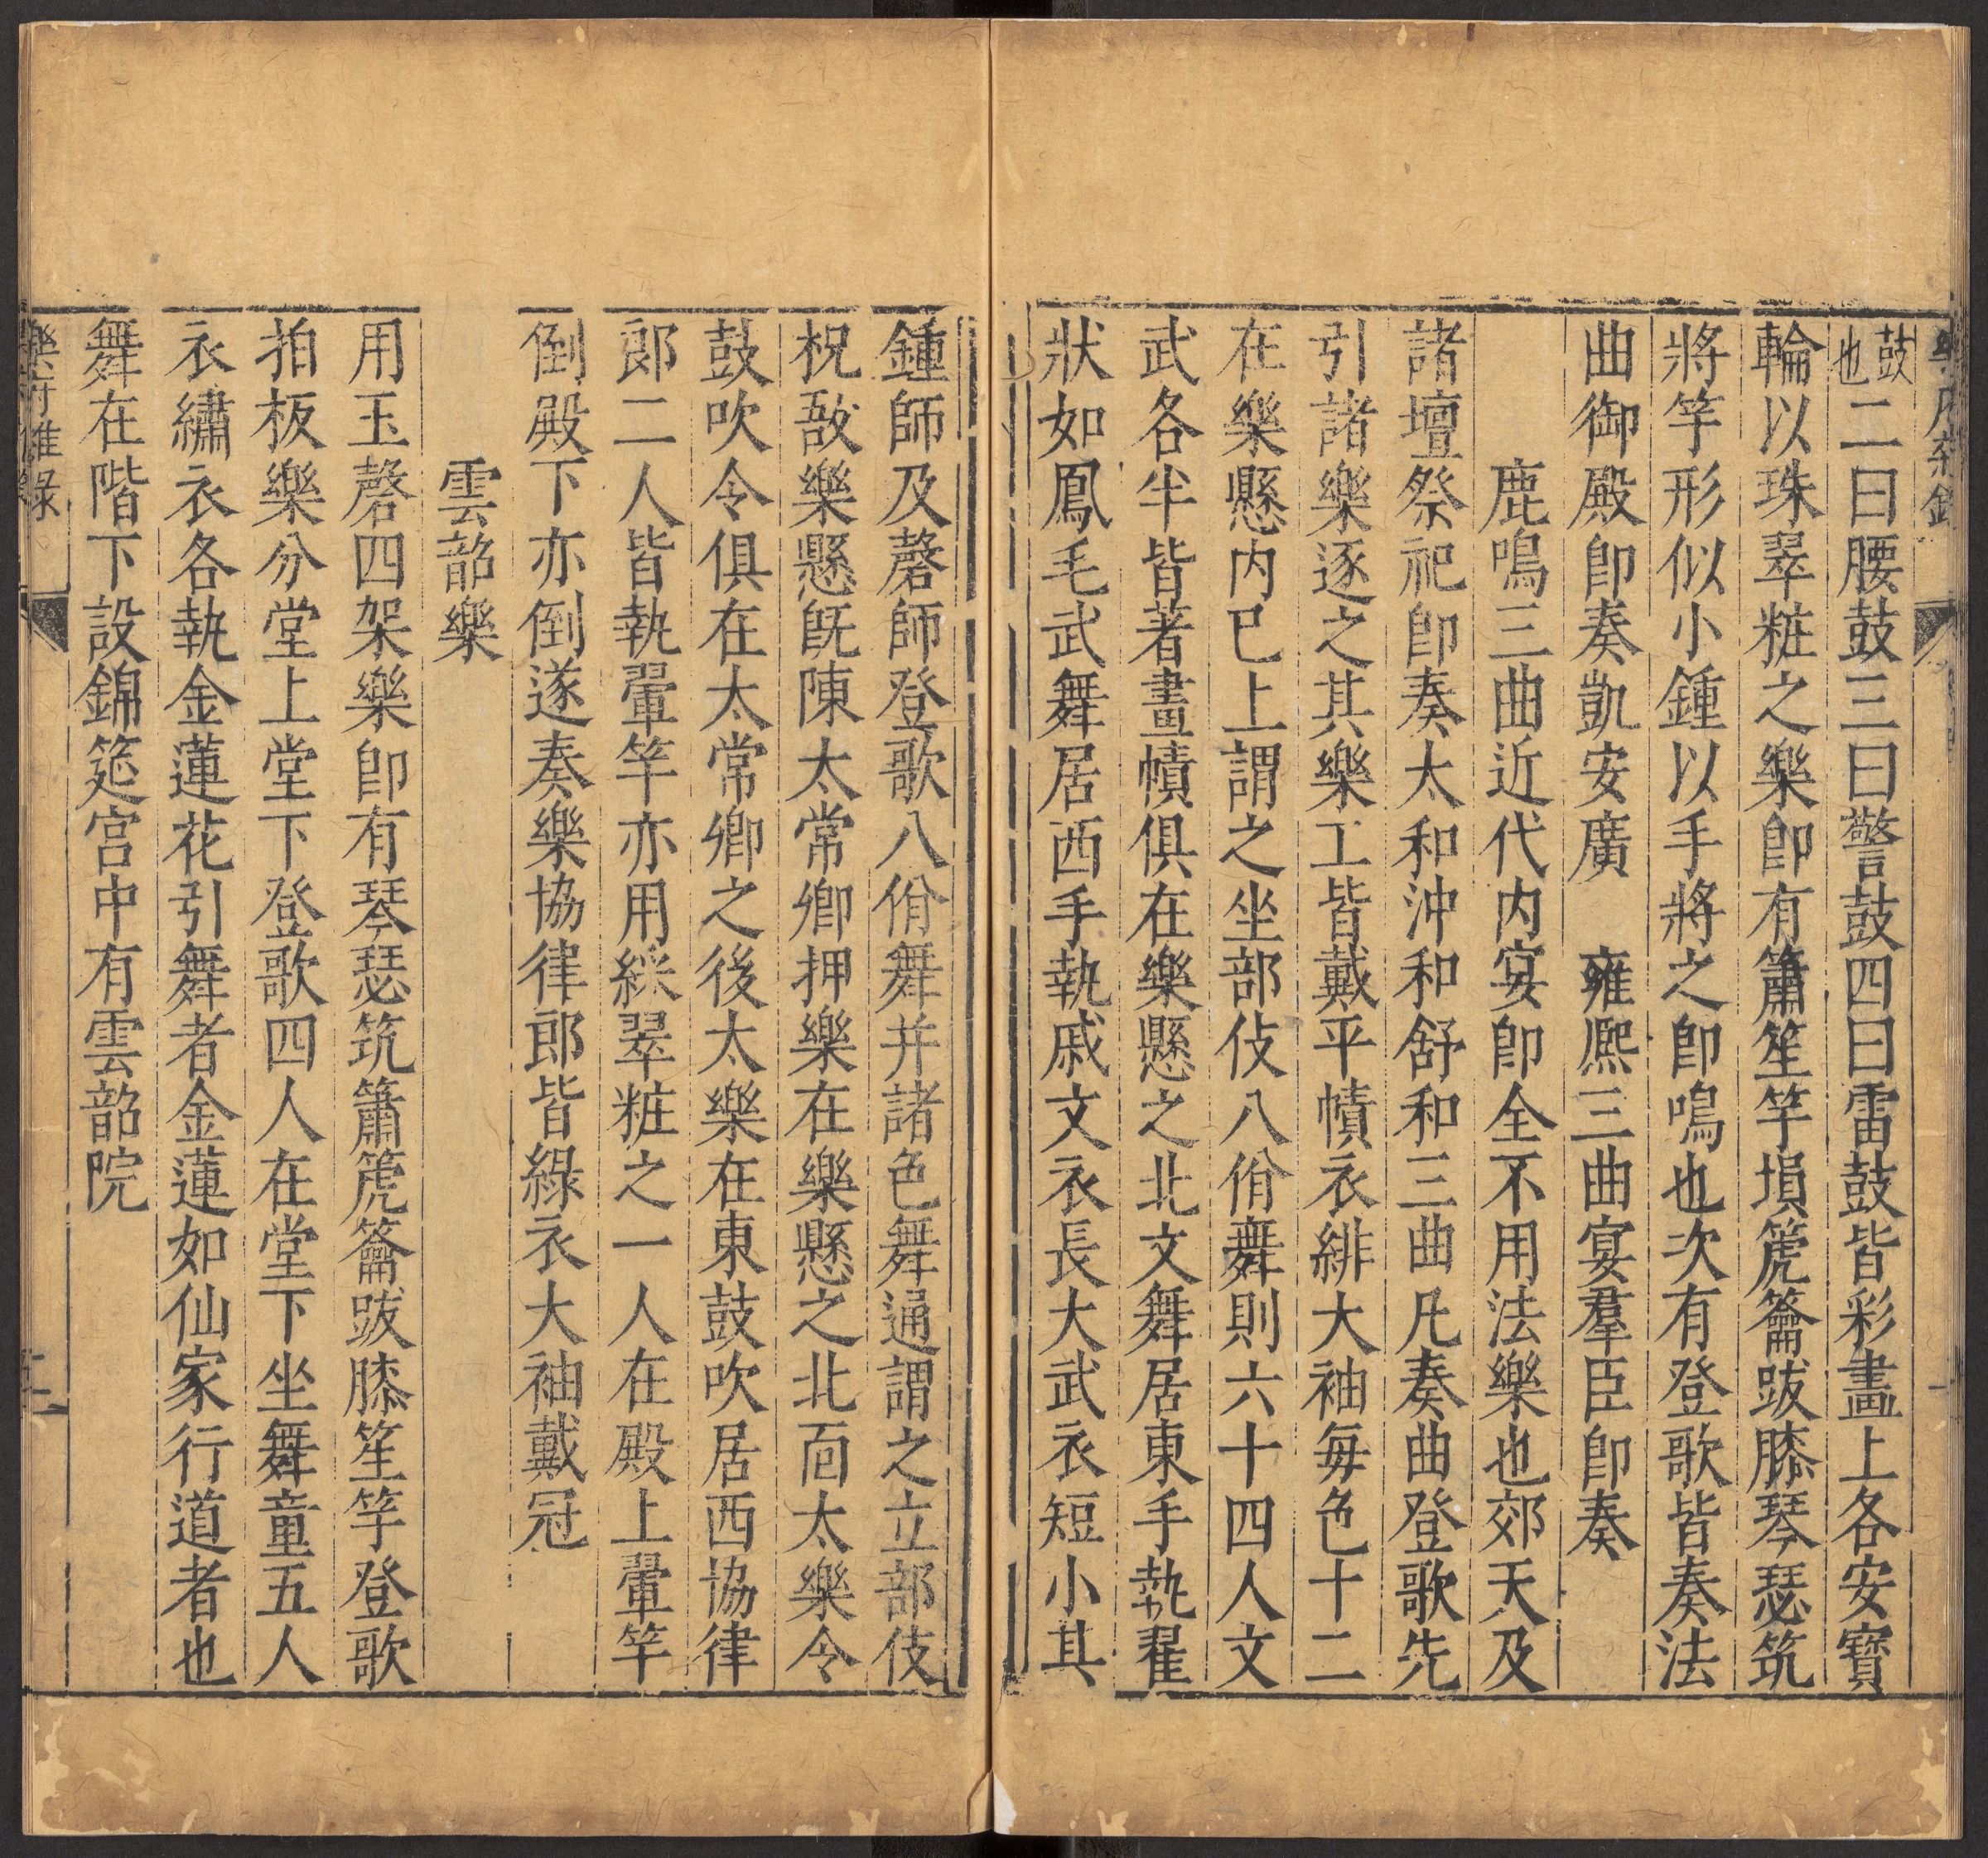 樂府雜錄
鼓也二曰腰鼓三曰警鼓四曰雷鼓皆彩畫上各安寶
輪以珠翠粧之樂卽有簫笙竽塤篪籥跋膝琴瑟筑
將竽形似小鍾以手將之卽鳴也次有登歌皆奏法
曲御殿卽奏凱安廣　雍熈三曲宴羣臣卽奏
鹿鳴三曲近代内宴卽全不用法樂也郊天及
諸壇祭祀卽奏太和沖和舒和三曲凡奏曲登歌先
引諸樂逐之其樂工皆戴平幘衣緋大袖每色十二
在樂懸内已上謂之坐部伎八佾舞則六十四人文
武各半皆著畫幘俱在樂懸之北文舞居東手執翟
狀如鳳毛武舞居西手執戚文衣長大武衣短小其
鍾師及磬師登歌八佾舞并諸色舞通謂之立部伎
柷敔樂懸旣陳太常卿押樂在樂懸之北面太樂令
鼓吹令俱在太常卿之後太樂在東鼓吹居西協律
郎二人皆執翬竿亦用綵翠粧之一人在殿上翬竿
倒殿下亦倒遂奏樂協律郎皆綠衣大袖戴冠
雲韶樂
用玉磬四架樂卽有琴瑟筑簫篪籥跋膝笙竽登歌
拍板樂分堂上堂下登歌四人在堂下坐舞童五人
衣繡衣各執金蓮花引舞者金蓮如仙家行道者也
舞在階下設錦筵宫中有雲韶院
樂府雜錄
二